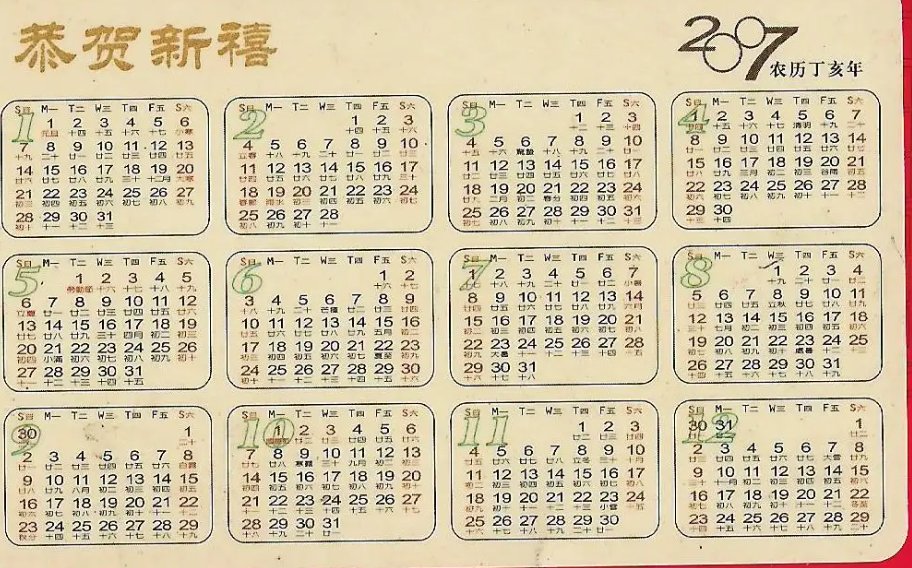 恭贺新禧
2007
农历丁亥年
1
S日 M一 T二 W三 T四 F五 S六
1 2 3 4 5 6
元旦 十四 十五 十六 十七 小寒
7 8 9 10 11 12 13
十九 二十 廿一 廿二 廿三 廿四 廿五
14 15 16 17 18 19 20
廿六 廿七 廿八 廿九 三十 十二月 大寒
21 22 23 24 25 26 27
初三 初四 初五 初六 初七 初八 初九
28 29 30 31
初十 十一 十二 十三
2
S日 M一 T二 W三 T四 F五 S六
1 2 3
十四 十五 十六
4 5 6 7 8 9 10
立春 十八 十九 二十 廿一 廿二 廿三
11 12 13 14 15 16 17
廿四 廿五 廿六 廿七 廿八 廿九 三十
18 19 20 21 22 23 24
春節 雨水 初三 初四 初五 初六 初七
25 26 27 28
初八 初九 初十 十一
3
S日 M一 T二 W三 T四 F五 S六
1 2 3
十二 十三 十四
4 5 6 7 8 9 10
十五 十六 驚蟄 十八 十九 二十 廿一
11 12 13 14 15 16 17
廿二 廿三 廿四 廿五 廿六 廿七 廿八
18 19 20 21 22 23 24
廿九 二月 初二 春分 初四 初五 初六
25 26 27 28 29 30 31
初七 初八 初九 初十 十一 十二 十三
4
S日 M一 T二 W三 T四 F五 S六
1 2 3 4 5 6 7
十五 十六 十七 清明 十九 二十
8 9 10 11 12 13 14
廿一 廿二 廿三 廿四 廿五 廿六 廿七
15 16 17 18 19 20 21
廿八 廿九 三月 初二 初三 谷雨 初五
22 23 24 25 26 27 28
初六 初七 初八 初九 初十 十一 十二
29 30
十三 十四
5
S日 M一 T二 W三 T四 F五 S六
1 2 3 4 5
勞動節 十六 十七 十八 十九
6 7 8 9 10 11 12
立夏 廿一 廿二 廿三 廿四 廿五 廿六
13 14 15 16 17 18 19
廿七 廿八 廿九 三十 四月 初二 初三
20 21 22 23 24 25 26
初四 小滿 初六 初七 初八 初九 初十
27 28 29 30 31
十一 十二 十三 十四 十五
6
S日 M一 T二 W三 T四 F五 S六
1 2
十六 十七
3 4 5 6 7 8 9
十八 十九 二十 芒種 廿二 廿三 廿四
10 11 12 13 14 15 16
廿五 廿六 廿七 廿八 廿九 五月 初二
17 18 19 20 21 22 23
初三 初四 初五 初六 初七 夏至 初九
24 25 26 27 28 29 30
初十 十一 十二 十三 十四 十五 十六
7
S日 M一 T二 W三 T四 F五 S六
1 2 3 4 5 6 7
十七 十八 十九 二十 廿一 廿二 小暑
8 9 10 11 12 13 14
廿四 廿五 廿六 廿七 廿八 廿九 六月
15 16 17 18 19 20 21
初二 初三 初四 初五 初六 初七 初八
22 23 24 25 26 27 28
初九 大暑 十一 十二 十三 十四 十五
29 30 31
十六 十七 十八
8
S日 M一 T二 W三 T四 F五 S六
1 2 3 4
十九 二十 廿一 廿二
5 6 7 8 9 10 11
廿三 廿四 廿五 立秋 廿七 廿八 廿九
12 13 14 15 16 17 18
三十 七月 初二 初三 初四 初五 初六
19 20 21 22 23 24 25
初七 初八 初九 初十 處暑 十二 十三
26 27 28 29 30 31
十四 十五 十六 十七 十八 十九
9
S日 M一 T二 W三 T四 F五 S六
30 1
二十
2 3 4 5 6 7 8
廿一 廿二 廿三 廿四 廿五 廿六 白露
9 10 11 12 13 14 15
廿八 廿九 八月 初二 初三 初四 初五
16 17 18 19 20 21 22
初六 初七 初八 初九 初十 十一 十二
23 24 25 26 27 28 29
秋分 十四 十五 十六 十七 十八 十九
10
S日 M一 T二 W三 T四 F五 S六
1 2 3 4 5 6
國慶節 廿二 廿三 廿四 廿五 廿六
7 8 9 10 11 12 13
廿七 廿八 寒露 三十 九月 初二 初三
14 15 16 17 18 19 20
初四 初五 初六 初七 初八 初九 初十
21 22 23 24 25 26 27
28 29 30 31
十八 十九 二十 廿一
11
S日 M一 T二 W三 T四 F五 S六
1 2 3
廿二 廿三 廿四
4 5 6 7 8 9 10
廿五 廿六 廿七 廿八 立冬 三十 十月
11 12 13 14 15 16 17
初二 初三 初四 初五 初六 初七 初八
18 19 20 21 22 23 24
初九 初十 十一 十二 十三 小雪 十五
25 26 27 28 29 30
十六 十七 十八 十九 二十 廿一
12
S日 M一 T二 W三 T四 F五 S六
30 31 1
廿二
2 3 4 5 6 7 8
廿三 廿四 廿五 廿六 廿七 大雪 廿九
9 10 11 12 13 14 15
三十 十一月 初二 初三 初四 初五 初六
16 17 18 19 20 21 22
初七 初八 初九 初十 十一 十二 冬至
23 24 25 26 27 28 29
十四 十五 十六 十七 十八 十九 二十